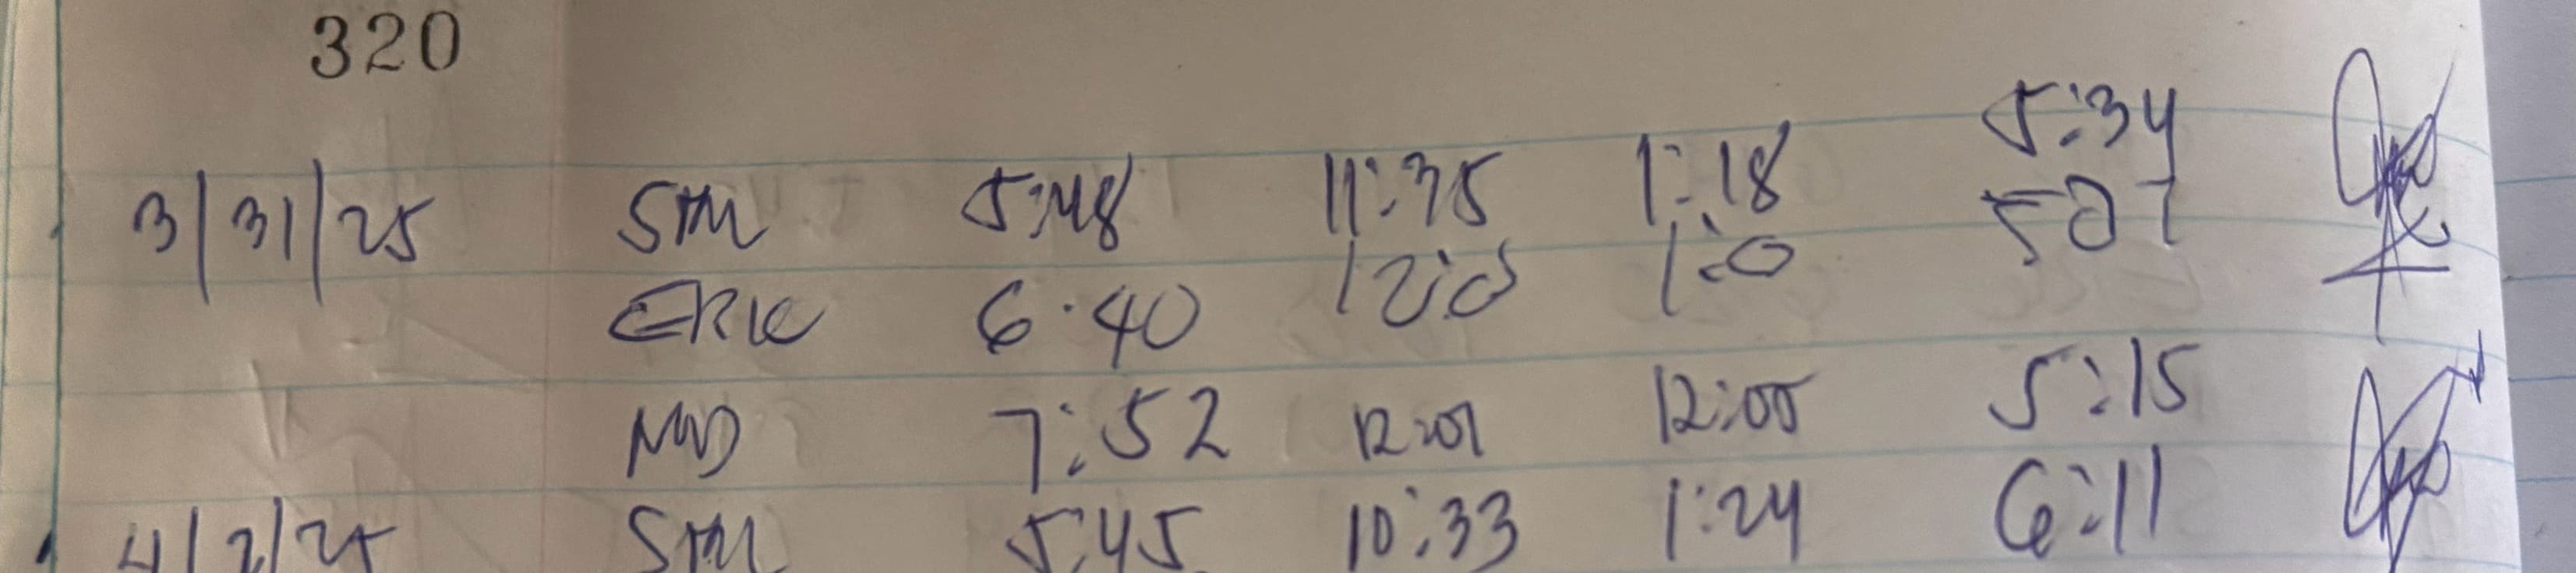 320
3/31/25 STM 5:48 11:35 1:18 5:34
ERIC 6:40 12:0 1:0 507
7:52 12:01 12:00 5:15
4/2/25 STM 5:45 10:33 1:24 6:11